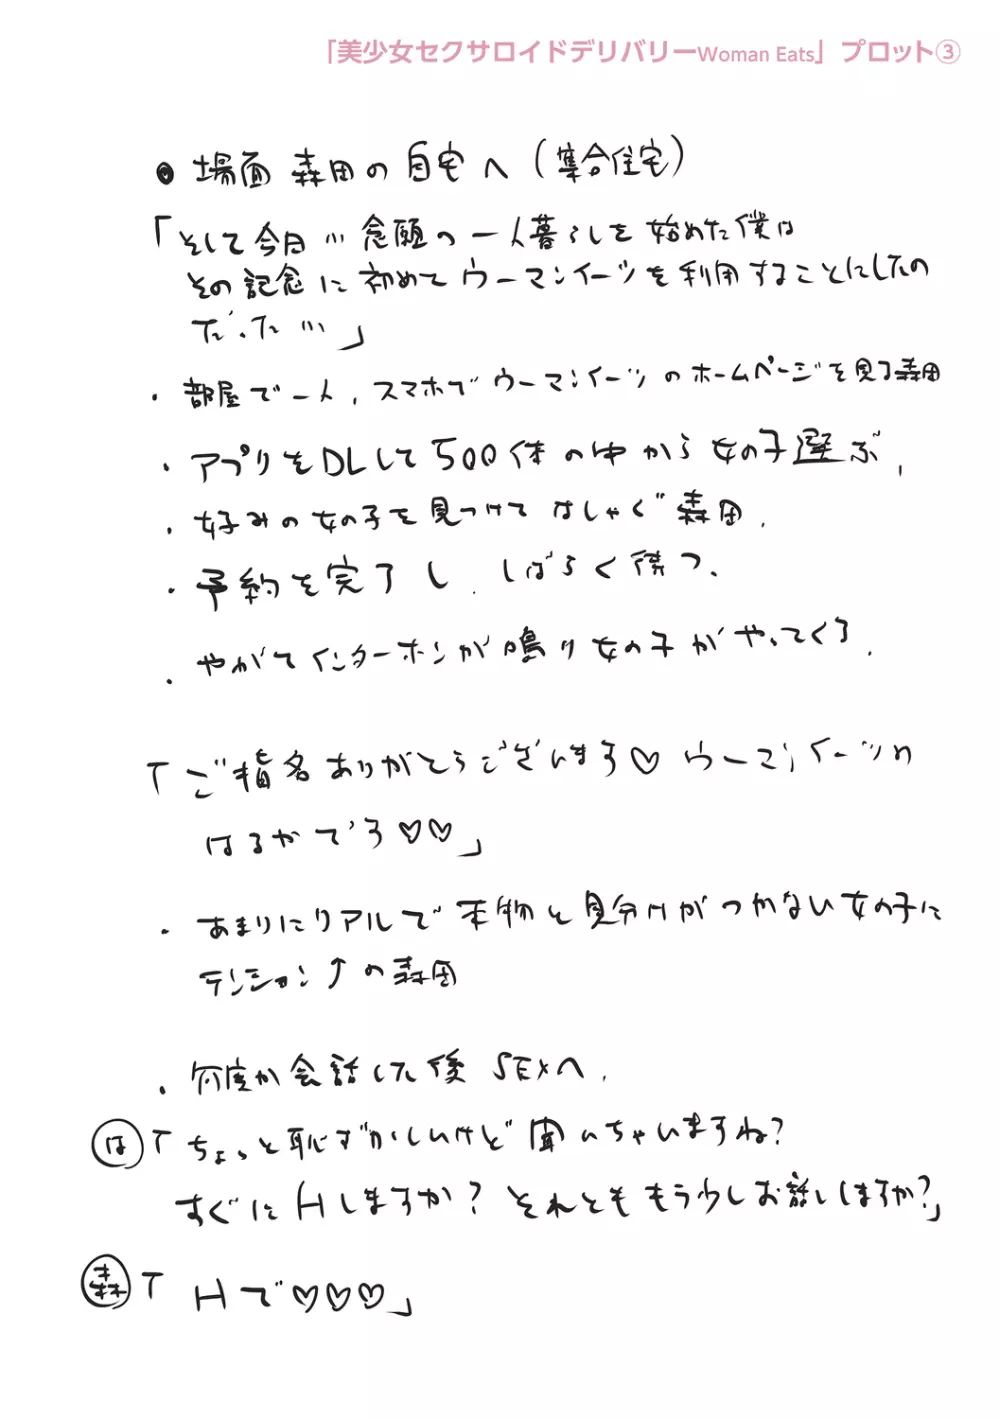 「美少女セクサロイドデリバリーWoman Eats」プロット③
● 場面 森田の自宅へ（集合住宅）
「そして今日… 念願の一人暮らしを始めた僕は
その記念に初めてウーマンイーツを利用することにしたの
だった…」
・部屋で一人、スマホでウーマンイーツのホームページを見る森田
・アプリをDLして500体の中から女の子選ぶ、
・好みの女の子を見つけてはしゃぐ森田、
・予約を完了し、しばらく待つ、
・やがてインターホンが鳴り女の子がやってくる、
「ご指名ありがとうございます♡ ウーマンイーツの
はるかです♡♡」
・あまりにリアルで本物と見分けがつかない女の子に
テンション↑の森田
・何度か会話した後SEXへ、
は「ちょっと恥ずかしいけど聞いちゃいますね？
すぐにHしますか？それとももう少しお話しますか？」
森「Hで♡♡♡」